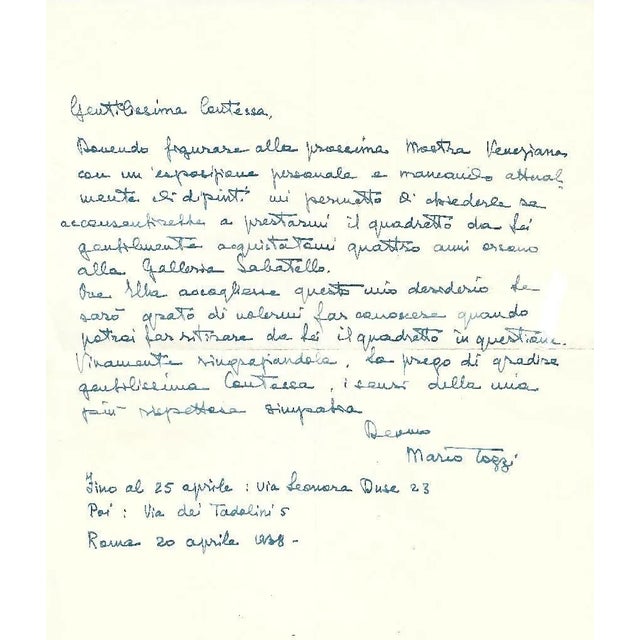 Gentilissima Contessa,
Dovendo figurare alla prossima Mostra Veneziana
con un'esposizione personale e mancando attual-
mente di dipinti mi permetto di chiederle se
acconsentirebbe a prestarmi il quadretto da Lei
gentilmente acquistatomi quattro anni orsono
alla Galleria Sabatello.
Ove Ella accogliesse questo mio desiderio Le
sarò grato di volermi far conoscere quando
potrei far ritirare da Lei il quadretto in questione.
Vivamente ringraziandola, La prego di gradire
gentilissima Contessa, i sensi della mia
più rispettosa simpatia
Devmo
Mario Tozzi
Fino al 25 aprile : Via Leonora Duse 23
Poi : Via dei Tadolini 5
Roma 20 aprile 1938 -